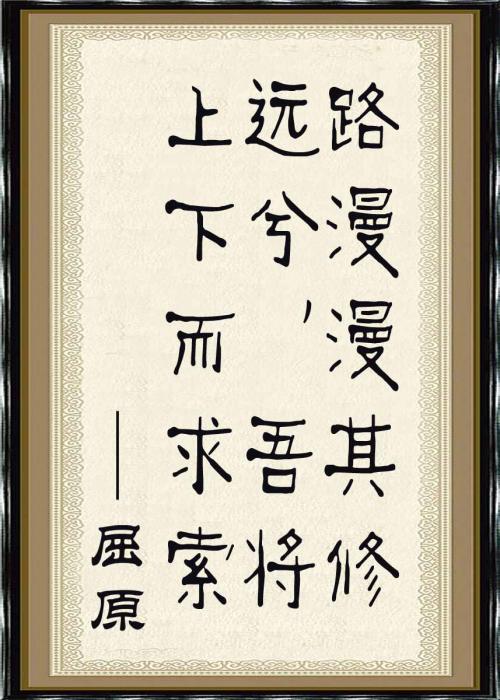 路漫漫其修
远兮，吾将
上下而求索
——屈原